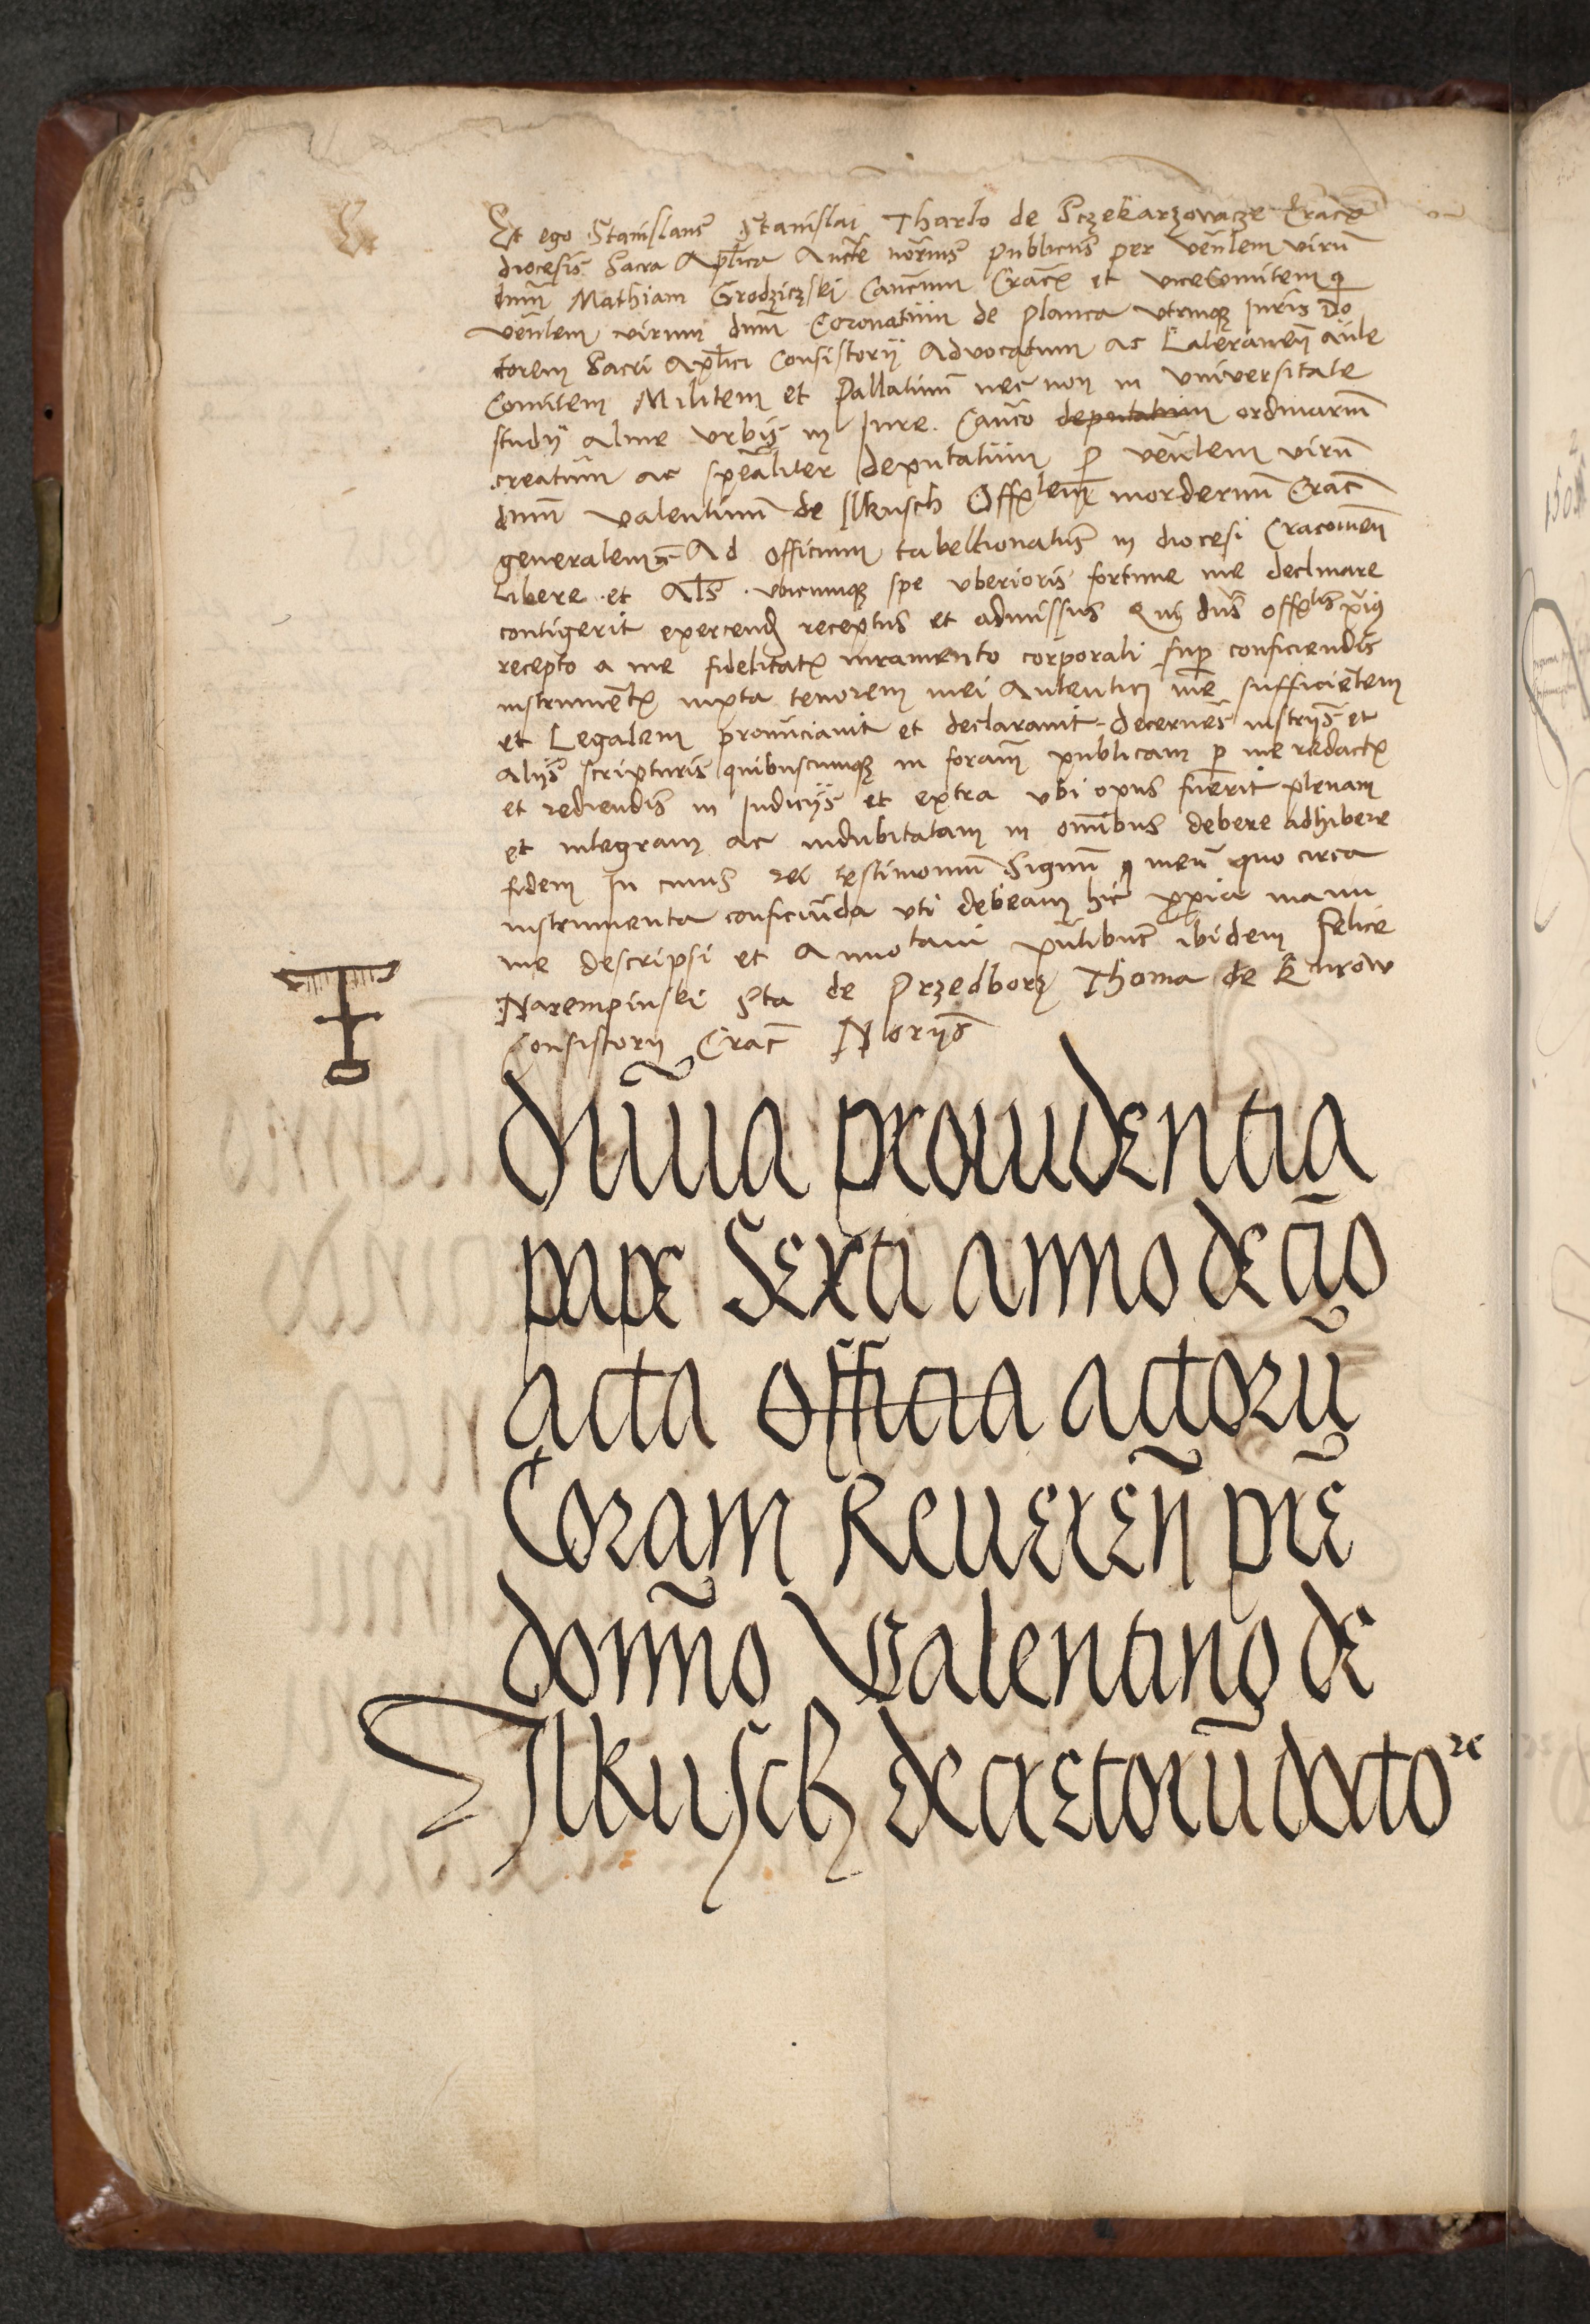 Et ego Stanislaus Stanislai Tharlo de Sczekarzowacze Cracō
diocesis Sacra Aplīca Auctē norīus publicus per venēlem virū
dnūm Mathiam Grodziczski Canēum Cracē et vicecomitem p
venēlem virum dnūm Coronatum de Planca vtriusqꝫ Iuris Do
ctorem Sacri Aplīci Consistorij Advocatum ac Lateranen̄ aule
Comitem Militem et Pallatinū nec non in vniversitate
studij alme vrbis in Iure Canōco deputatum ordinariū
creatum ac speāliter deputatum p venēlem virū
dnūm valentinū de Ilkusch Offālem modernū Crac̄
generalem Ad officium tabellionatus in diocesi Cracovien̄
libere et Alīs vbicumqꝫ spe vberioris fortune me declinare
contigerit exercend receptus et admissus Qui dn̄s offālis prius
recepto a me fidelitatis iuramento corporali sup conficiendis
instrumentis iuxta tenorem mei Autentici mē sufficientem
et Legalem pronunciavit et declaravit decernēs instrīs et
Alijs scripturis quibuscumqꝫ in formam publicam p me redactis
et rediendis in Iudicijs et extra vbi opus fuerit plenam
et integram ac indubitatam in omībus debere adhibere
fidem In cuius rei testimoniū Signū meū quo circa
instrumenta conficiūda vti debeam hic propria manu
me descripsi et Annotavi pn̄tibus ibidem Felice
Narempinski Sta de Przedborz Thoma de Kurow
Consistorij Crac̄ Norijs
diūīa prouidentia
pape Sexti anno deciō
acta officia actorū
Coram Reueren̄ prē
domīno Valentino de
Ilkusch decretorū docto re